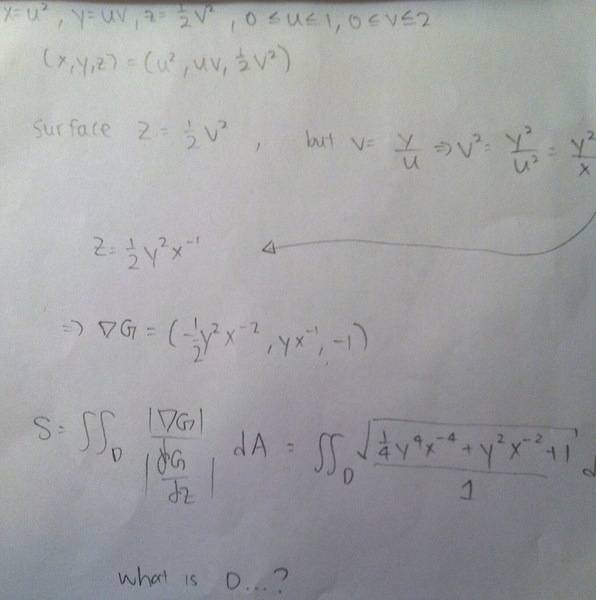 x=u², y=uv, z=½v², 0≤u≤1, 0≤v≤2
(x,y,z)=(u², uv, ½v²)
surface z=½v², but v= y/u ⇒ v²= y²/u² = y²/x
z=½y²x⁻¹
⇒ ∇G = (-½y²x⁻², yx⁻¹, -1)
S= ∬_D |∇G| / |dG/dz| dA = ∬_D √(¼y⁴x⁻⁴+y²x⁻²+1) / 1 d
what is D...?